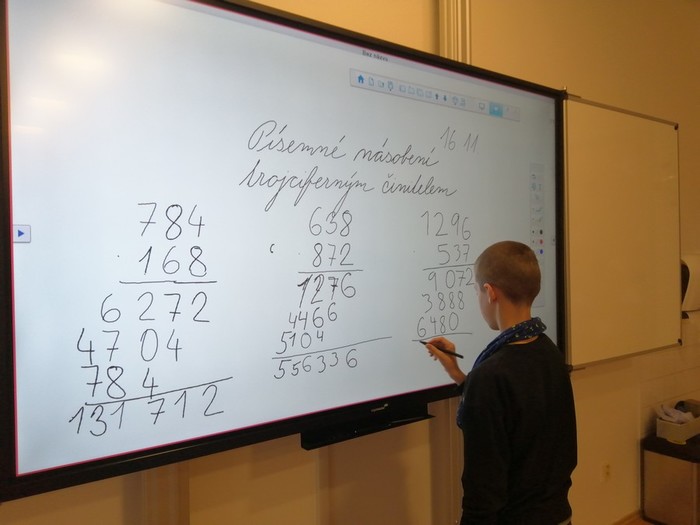 Bez názvu
16 11
Písemné násobení
trojciferným činitelem
784
. 168
6 272
47 04
78 4
131 712
638
. 872
1276
4466
5104
556336
1296
. 537
9 072
3888
6480